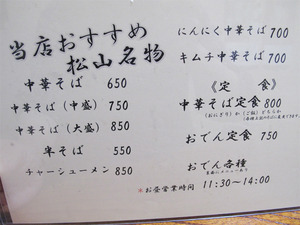 当店おすすめ
松山名物
中華そば 650
中華そば(中盛) 750
中華そば(大盛) 850
半そば 550
チャーシューメン 850
にんにく中華そば 700
キムチ中華そば 700
《定 食》
中華そば定食 800
(おにぎり)か(ご飯)どちらか
おでん定食 750
おでん各種
※お昼営業時間 11:30~14:00